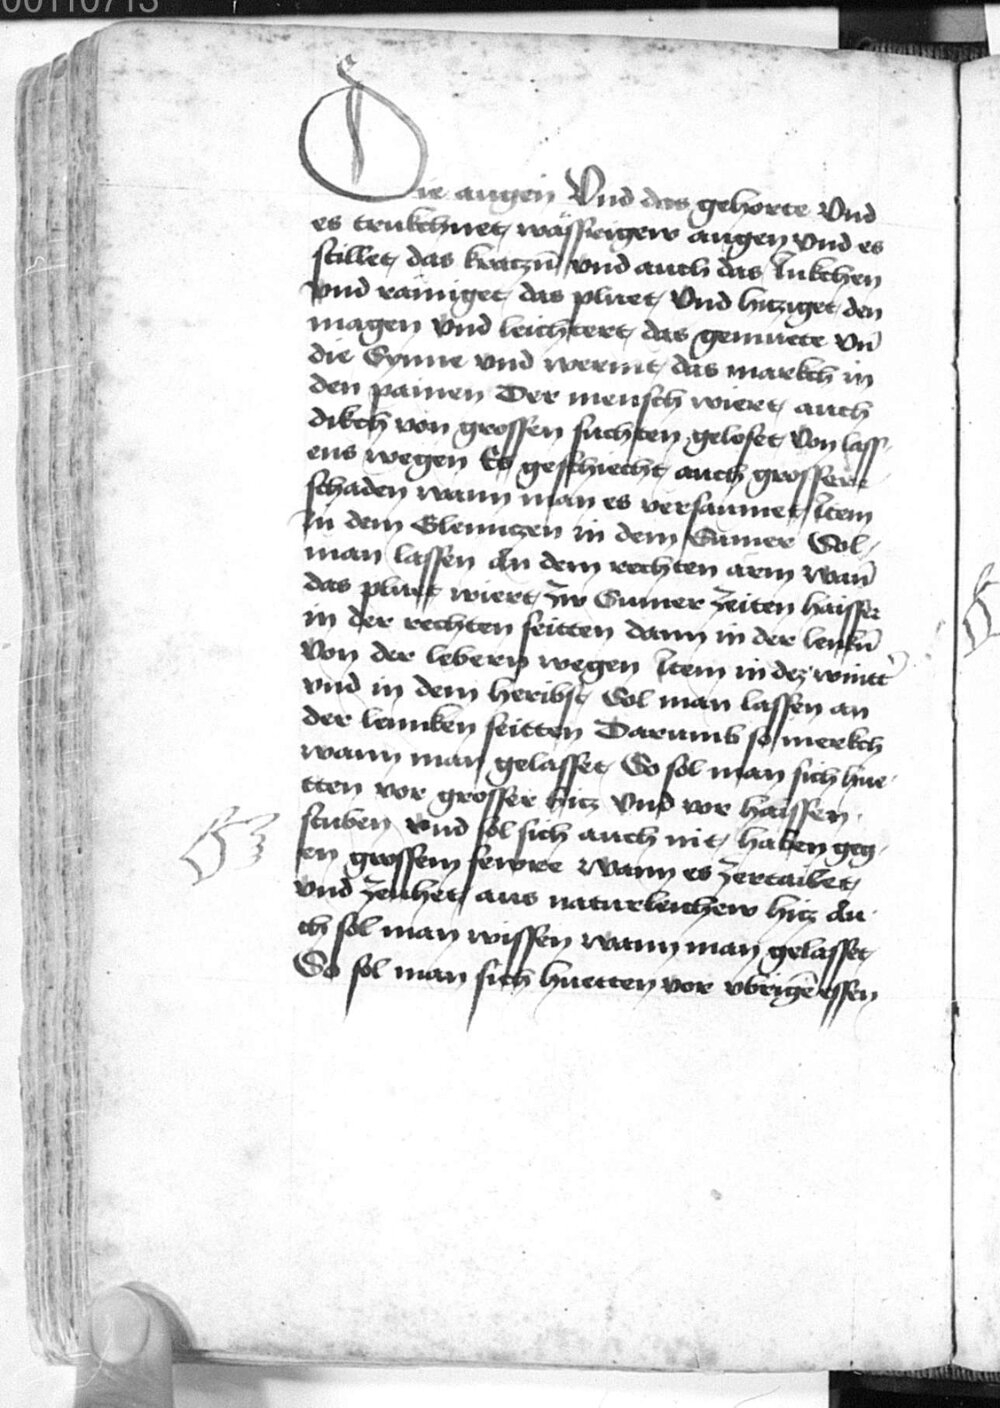 00110713
Die augen Vnd das gehorte Vnd
es trukchnet wässrigew augen vnd es
stillet das kratzn̄ vnd auch das Iukchen
vnd rainiget das pluet Vnd hitziget den
magen vnd leichtert das gemuete vn̄
die Synne vnd wermt das markch in
den painen Der mensch wiert auch
dikch von grossen suchten geloset Von lass
ens wegen Es geschiecht auch grosser
schaden wann man es versaumet Item
In dem Glenntzen in dem Sumer Sol
man lassen An dem rechten arm wan̄
das pluet wiert zw Sumer zeiten haisser
in der rechten seitten dann in der lenkn̄
Von der lebern wegen Item in dez wintt̄
vnd in dem heribst Sol man lassen an
der lennken seitten Darumb so merkch
wann man gelasset So sol man sich hue
tten vor grosser hitz Vnd vor haissen
stuben vnd sol sich auch nit haben geg
en grossem fewre Wann es zertailet
vnd zeuhet aus naturleichew hitz Au
ch sol man wissen wann man gelasset
So sol man sich huetten vor vbrigē essen